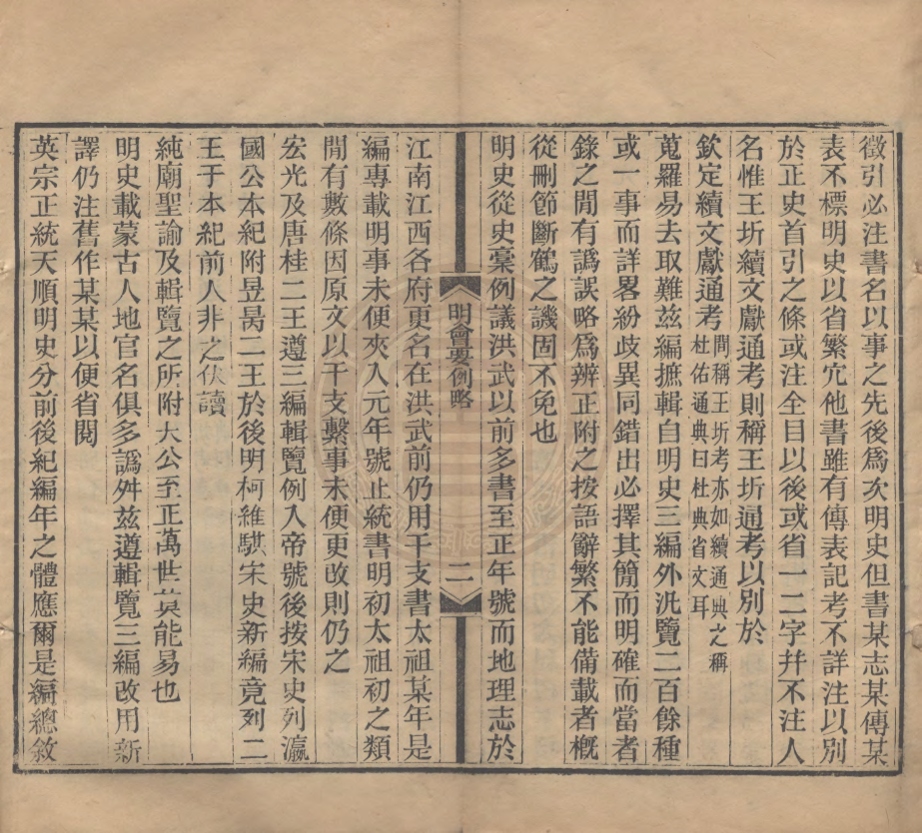 徵引必注書名以事之先後爲次明史但書某志某傳某
表不標明史以省繁宂他書雖有傳表記考不詳注以別
於正史首引之條或注全目以後或省一二字幷不注人
名惟王圻續文獻通考則稱王圻通考以別於
欽定續文獻通考間稱王圻考亦如續通典之稱
杜佑通典曰杜典省文耳
蒐羅易去取難兹編摭輯自明史三編外汎覽二百餘種
或一事而詳畧紛歧異同錯出必擇其簡而明確而當者
錄之閒有譌誤略爲辨正附之按語辭繁不能備載者槪
從刪節斷鶴之譏固不免也
明史從史稾例議洪武以前多書至正年號而地理志於
明會要例略
二
江南江西各府更名在洪武前仍用干支書太祖某年是
編專載明事未便夾入元年號止統書明初太祖初之類
閒有數條因原文以干支繫事未便更改則仍之
宏光及唐桂二王遵三編輯覽例入帝號後按宋史列瀛
國公本紀附昰昺二王於後明柯維騏宋史新編竟列二
王于本紀前人非之伏讀
純廟聖諭及輯覽之所附大公至正萬世莫能易也
明史載蒙古人地官名俱多譌舛兹遵輯覽三編改用新
譯仍注舊作某某以便省閱
英宗正統天順明史分前後紀編年之體應爾是編總敘